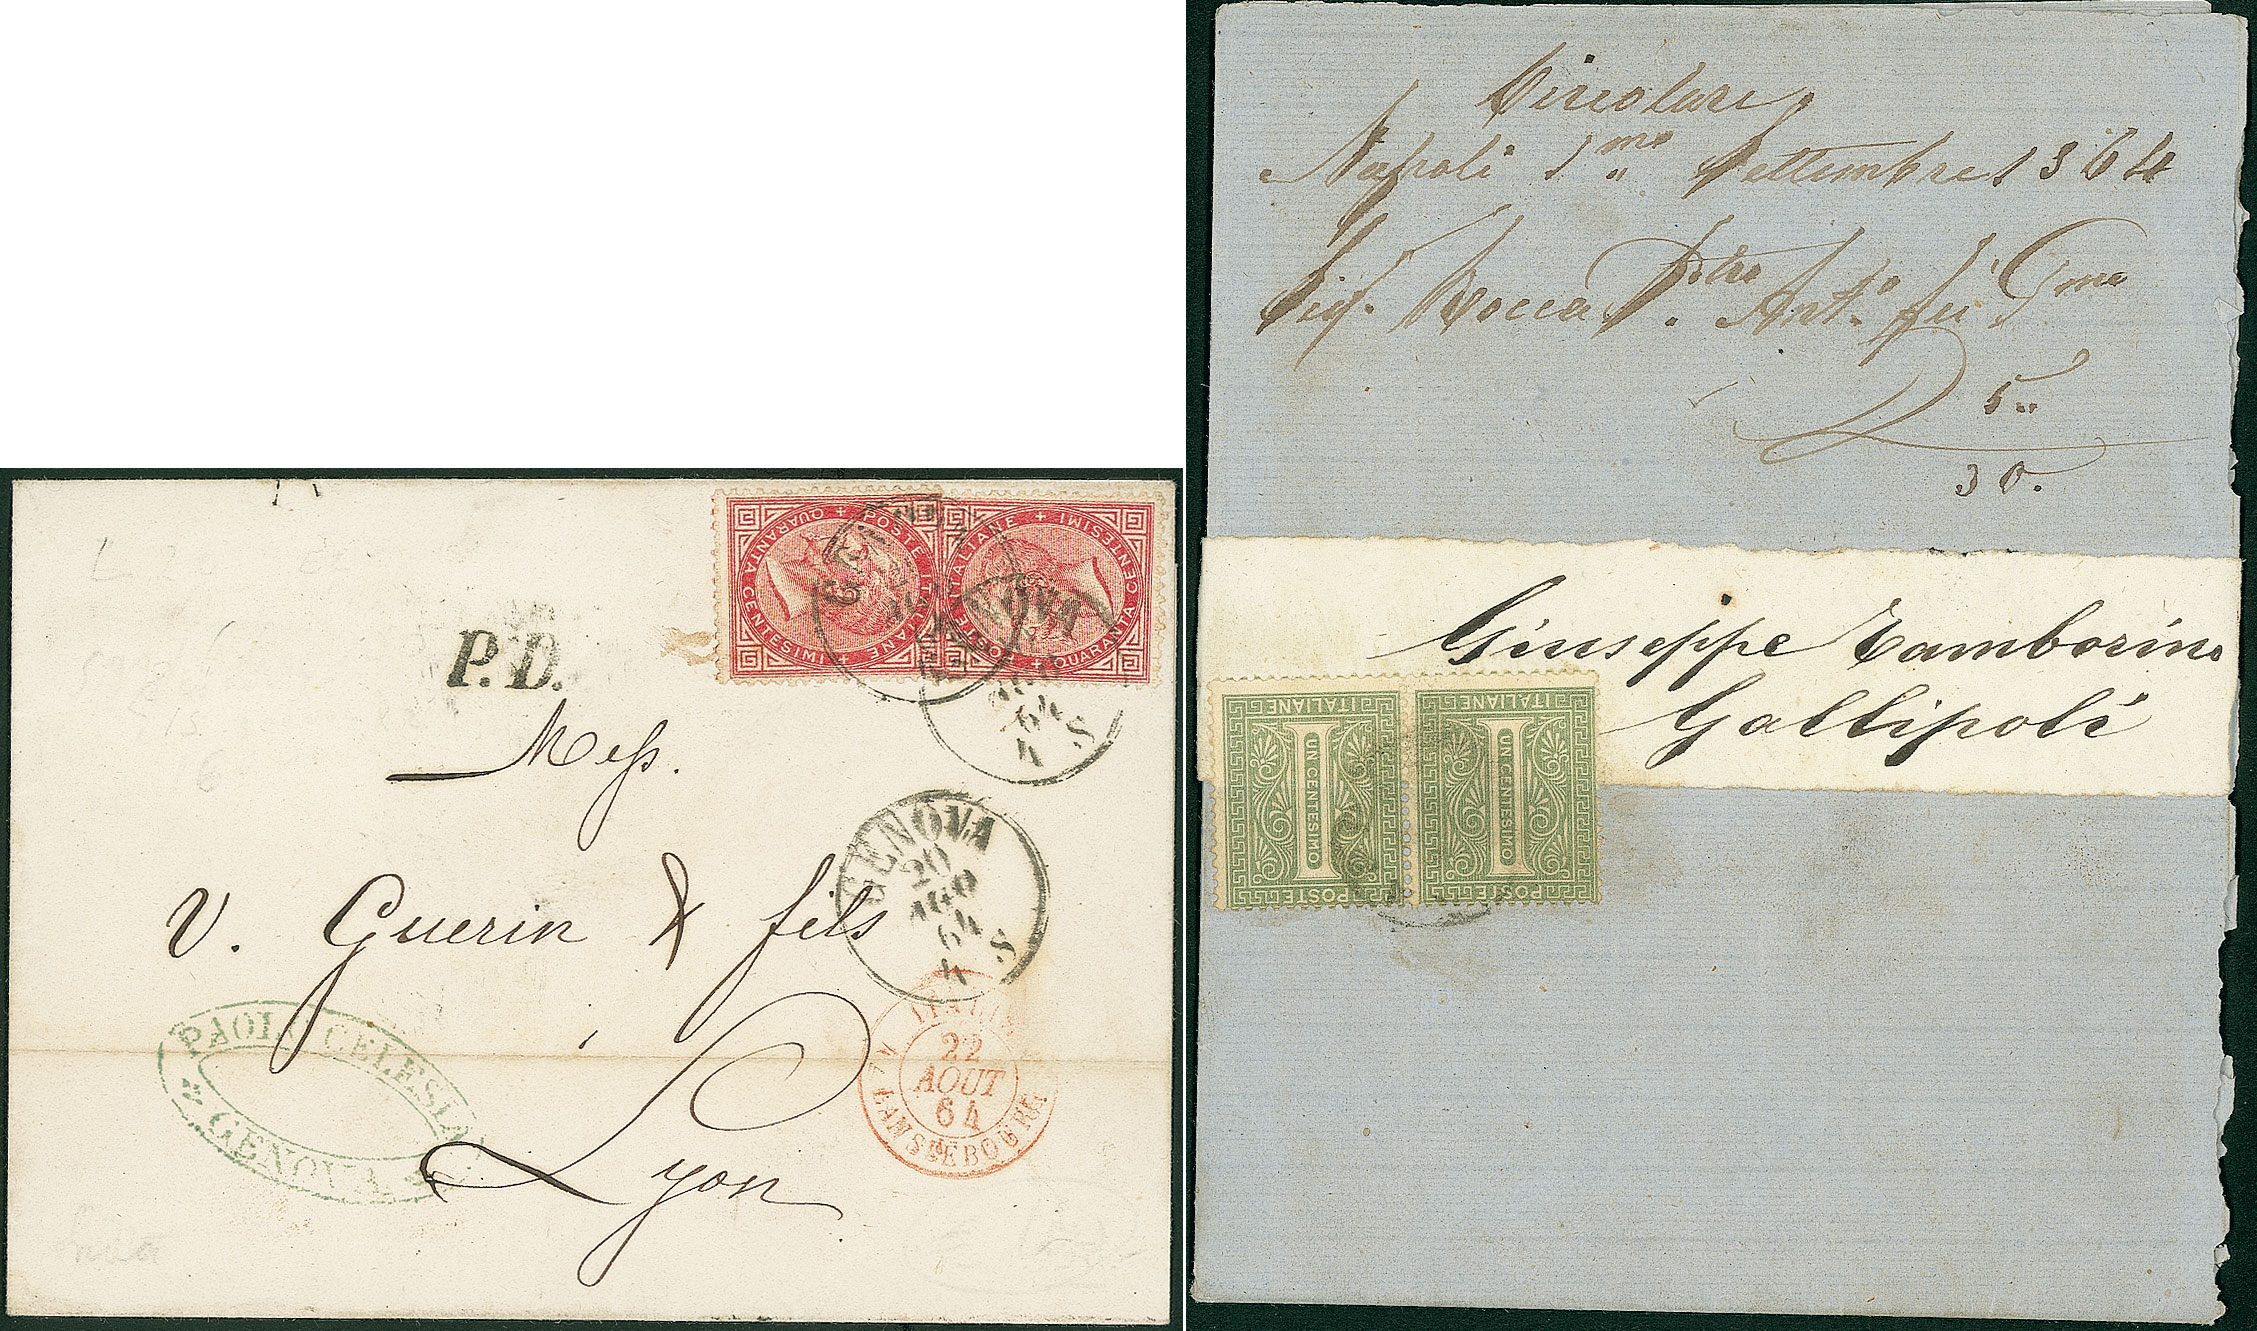 QUARANTA CENTESIMI + POSTE ITALIANE +
POSTE ITALIANE + QUARANTA CENTESIMI +
GENOVA
GENOVA
AGO
64
4 S
P.D.
Mess.
V. Guerin & fils
Lyon
GENOVA
20
AGO
64
4 S
ITALIE
22
AOUT
64
LANSLEBOURG
GENOVA
Circolare
Napoli 1mo Settembre 1864
Sig. Rocca Ant.o fu
5
30.
Giuseppe Tamborino
Gallipoli
POSTE
UN CENTESIMO
ITALIANE
POSTE
UN CENTESIMO
ITALIANE